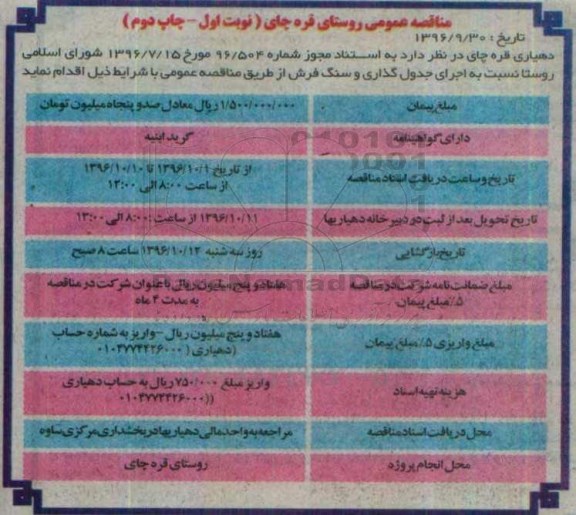 مناقصه عمومی روستای قره چای ( نوبت اول - چاپ دوم )
تاریخ : ۱۳۹۶/۹/۳۰
دهیاری قره چای در نظر دارد به استناد مجوز شماره ۹۶/۵۰۴ مورخ ۱۳۹۶/۷/۱۵ شورای اسلامی
روستا نسبت به اجرای جدول گذاری و سنگ فرش از طریق مناقصه عمومی با شرایط ذیل اقدام نماید
مبلغ پیمان ۱/۵۰۰/۰۰۰/۰۰۰ ریال معادل صد و پنجاه میلیون تومان
دارای گواهینامه گرید ابنیه
تاریخ و ساعت دریافت اسناد مناقصه از تاریخ ۱۳۹۶/۱۰/۱ تا ۱۳۹۶/۱۰/۱۰
از ساعت ۸:۰۰ الی ۱۲:۰۰
تاریخ تحویل بعد از ثبت در دبیر خانه دهیاریها ۱۳۹۶/۱۰/۱۱ از ساعت ۸:۰۰ الی ۱۳:۰۰
تاریخ بازگشایی روز سه شنبه ۱۳۹۶/۱۰/۱۲ ساعت ۸ صبح
مبلغ ضمانت نامه شرکت در مناقصه هفتاد و پنج میلیون ریال با عنوان شرکت در مناقصه
۵٪ مبلغ پیمان به مدت ۴ ماه
مبلغ واریزی ۵٪ مبلغ پیمان هفتاد و پنج میلیون ریال - واریز به شماره حساب
(دهیاری
هزینه تهیه اسناد واریز مبلغ ۷۵۰/۰۰۰ ریال به حساب دهیاری
محل دریافت اسناد مناقصه مراجعه به واحد مالی دهیاریها در بخشداری مرکزی ساوه
محل انجام پروژه روستای قره چای